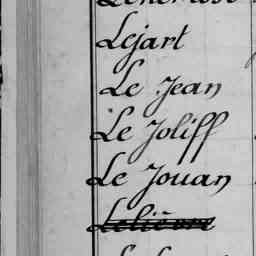 Lejart
Le Jean
Le Joliff
Le Jouan